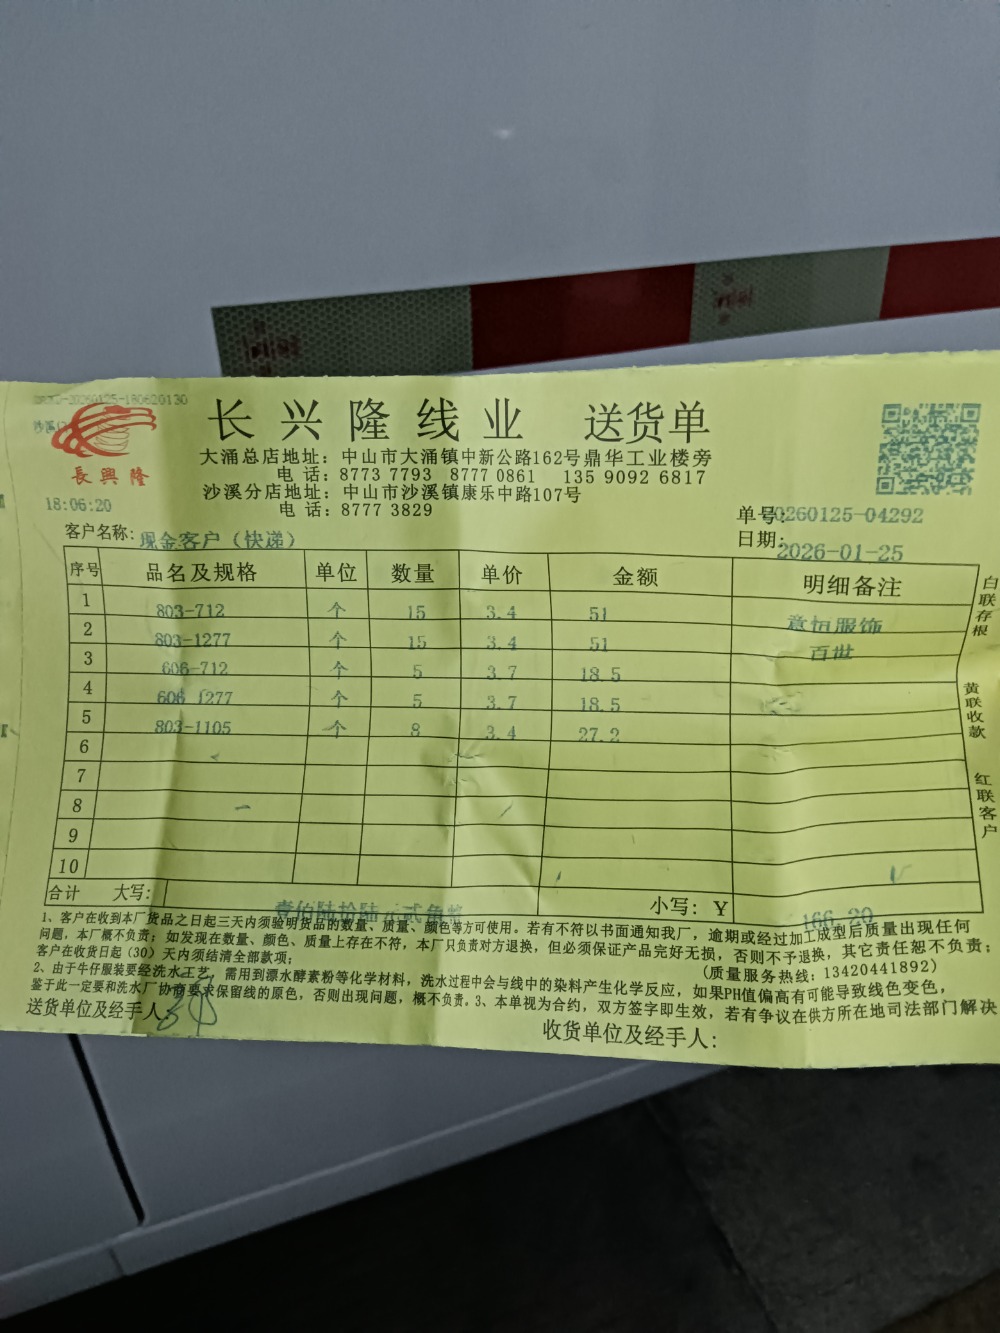 20260125-180620130
沙溪
長興隆
18:06:20
长兴隆线业 送货单
大涌总店地址：中山市大涌镇中新公路162号鼎华工业楼旁
电话：8773 7793 8777 0861 135 9092 6817
沙溪分店地址：中山市沙溪镇康乐中路107号
电话：8777 3829
单号:20260125-04292
日期:2026-01-25
客户名称:现金客户（快递）
序号 品名及规格 单位 数量 单价 金额 明细备注
1 803-712 个 15 3.4 51 意恒服饰
2 803-1277 个 15 3.4 51 百世
3 606-712 个 5 3.7 18.5
4 606 1277 个 5 3.7 18.5
5 803-1105 个 8 3.4 27.2
6
7
8
9
10
合计 大写: 壹佰陆拾陆元贰角整 小写: Y 166.20
白联存根
黄联收款
红联客户
1、客户在收到本厂货品之日起三天内须验明货品的数量、质量、颜色等方可使用。若有不符以书面通知我厂，逾期或经过加工成型后质量出现任何
问题，本厂概不负责；如发现在数量、颜色、质量上存在不符，本厂只负责对方退换，但必须保证产品完好无损，否则不予退换，其它责任恕不负责；
客户在收货日起（30）天内须结清全部款项；
(质量服务热线：13420441892)
2、由于牛仔服装要经洗水工艺，需用到漂水酵素粉等化学材料，洗水过程中会与线中的染料产生化学反应，如果PH值偏高有可能导致线色变色，
鉴于此一定要和洗水厂协商要求保留线的原色，否则出现问题，概不负责。3、本单视为合约，双方签字即生效，若有争议在供方所在地司法部门解决
送货单位及经手人:
收货单位及经手人: